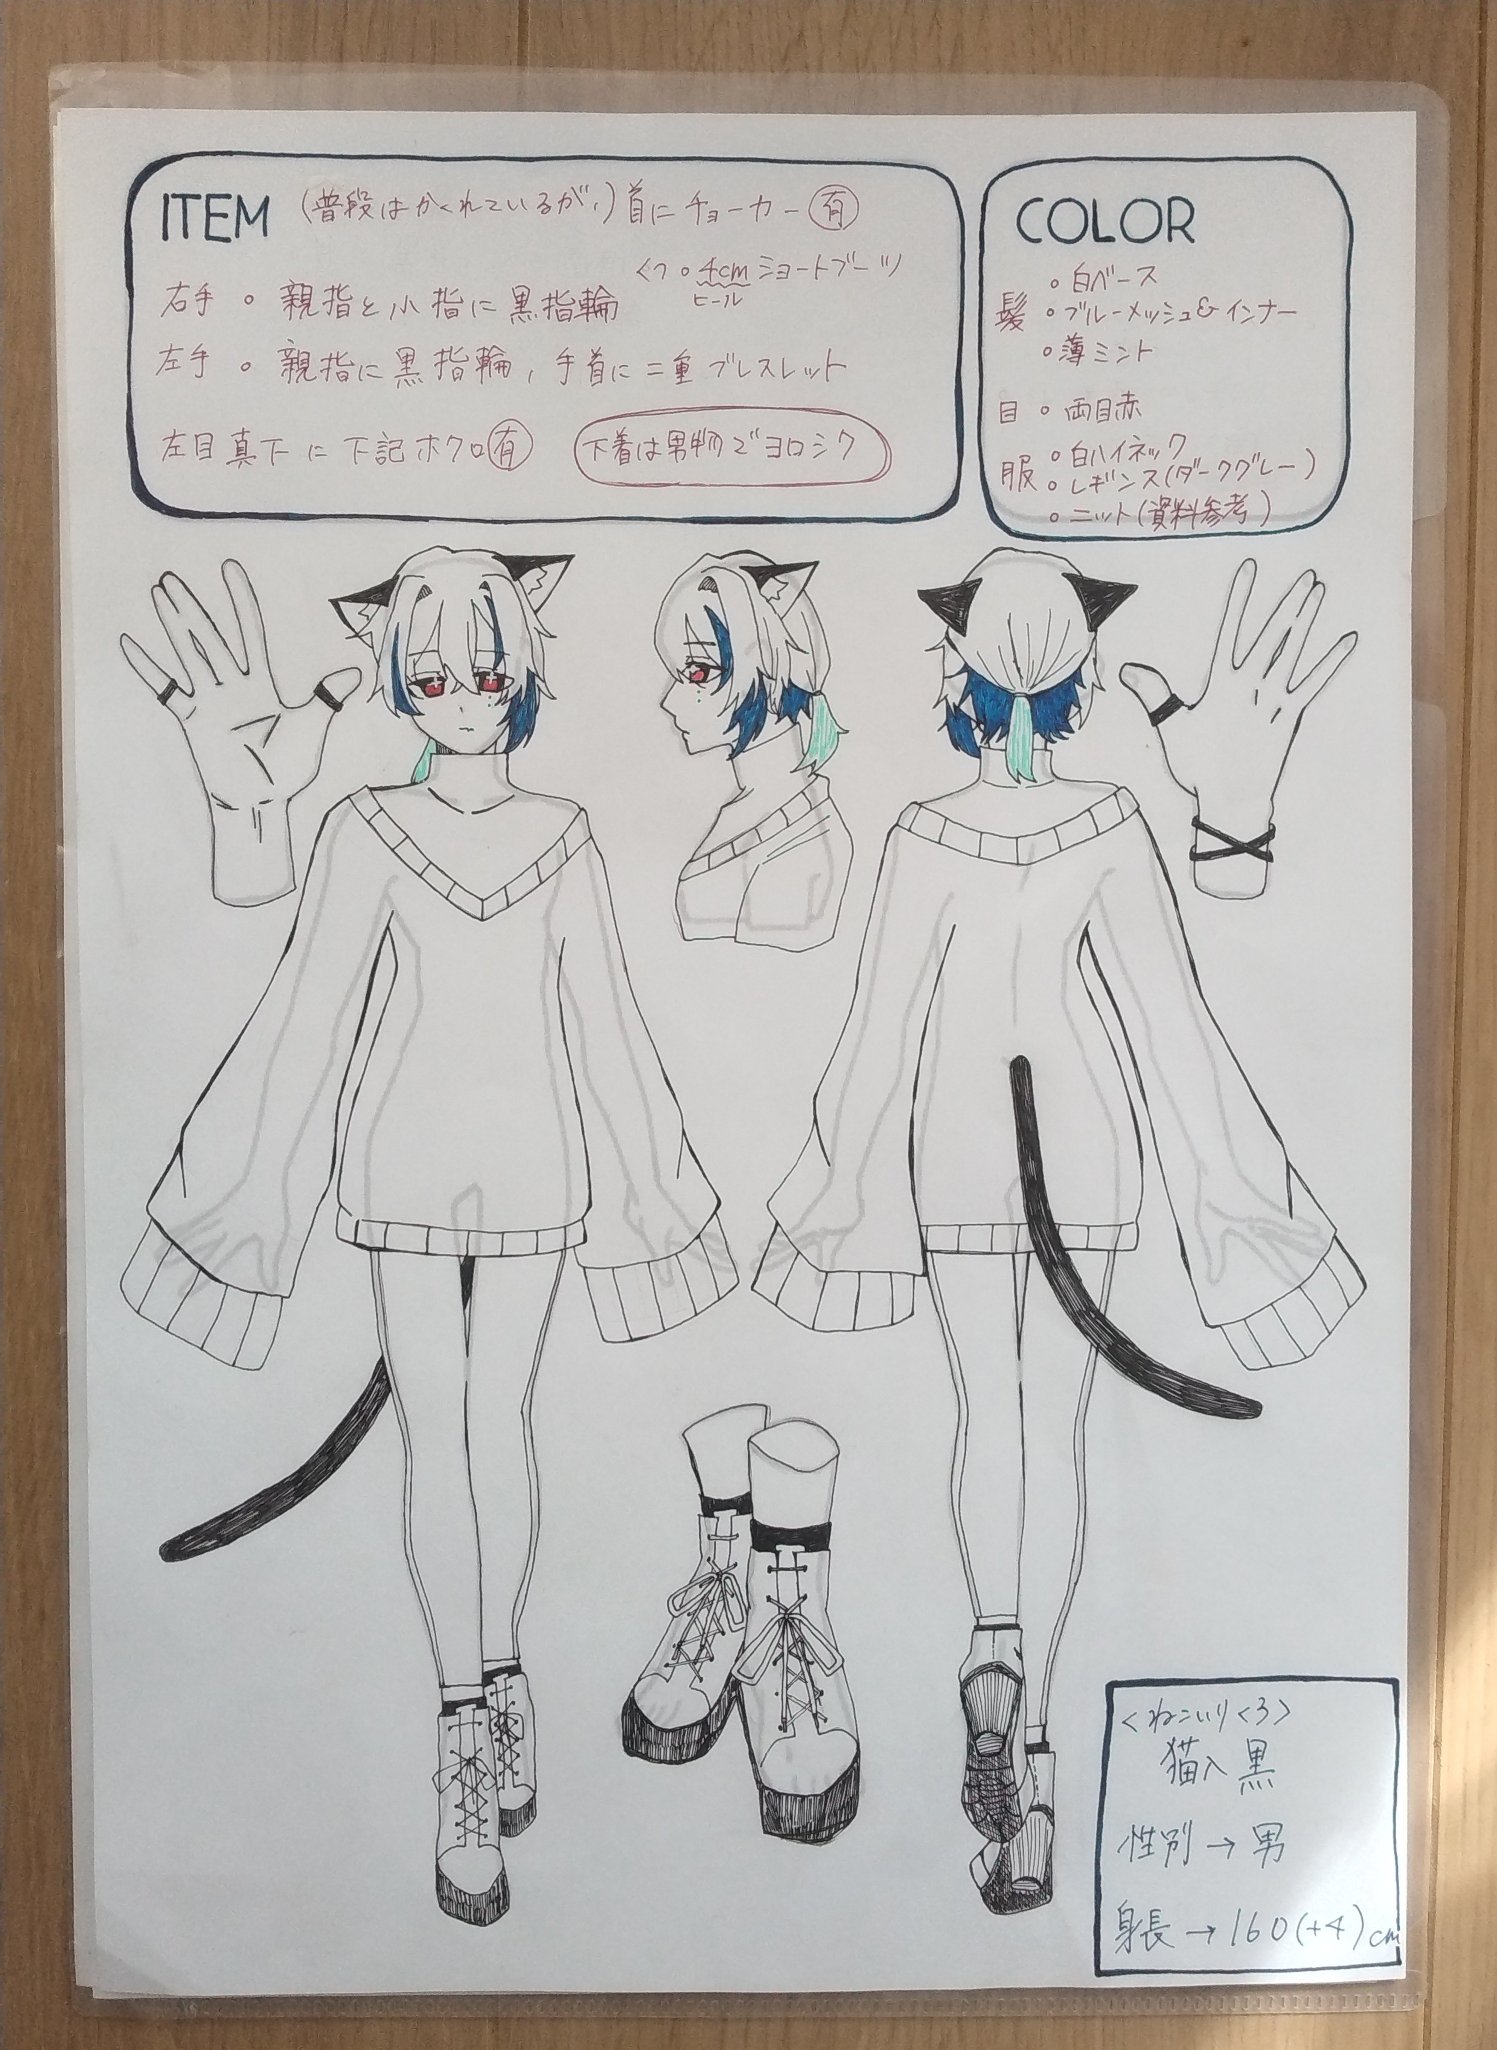 ITEM (普段はかくれているが、)首にチョーカー有
くつ。4cmショートブーツ
ヒール
右手 。親指と小指に黒指輪
左手 。親指に黒指輪,手首に二重ブレスレット
左目真下に下記ホクロ有 下着は男物でヨロシク
COLOR
髪 。白ベース
。ブルーメッシュ&インナー
。薄ミント
目 。両目赤
服 。白ハイネック
。レギンス(ダークグレー)
。ニット(資料参考)
<ねこいりくろ>
猫入黒
性別→男
身長→160(+4)cm